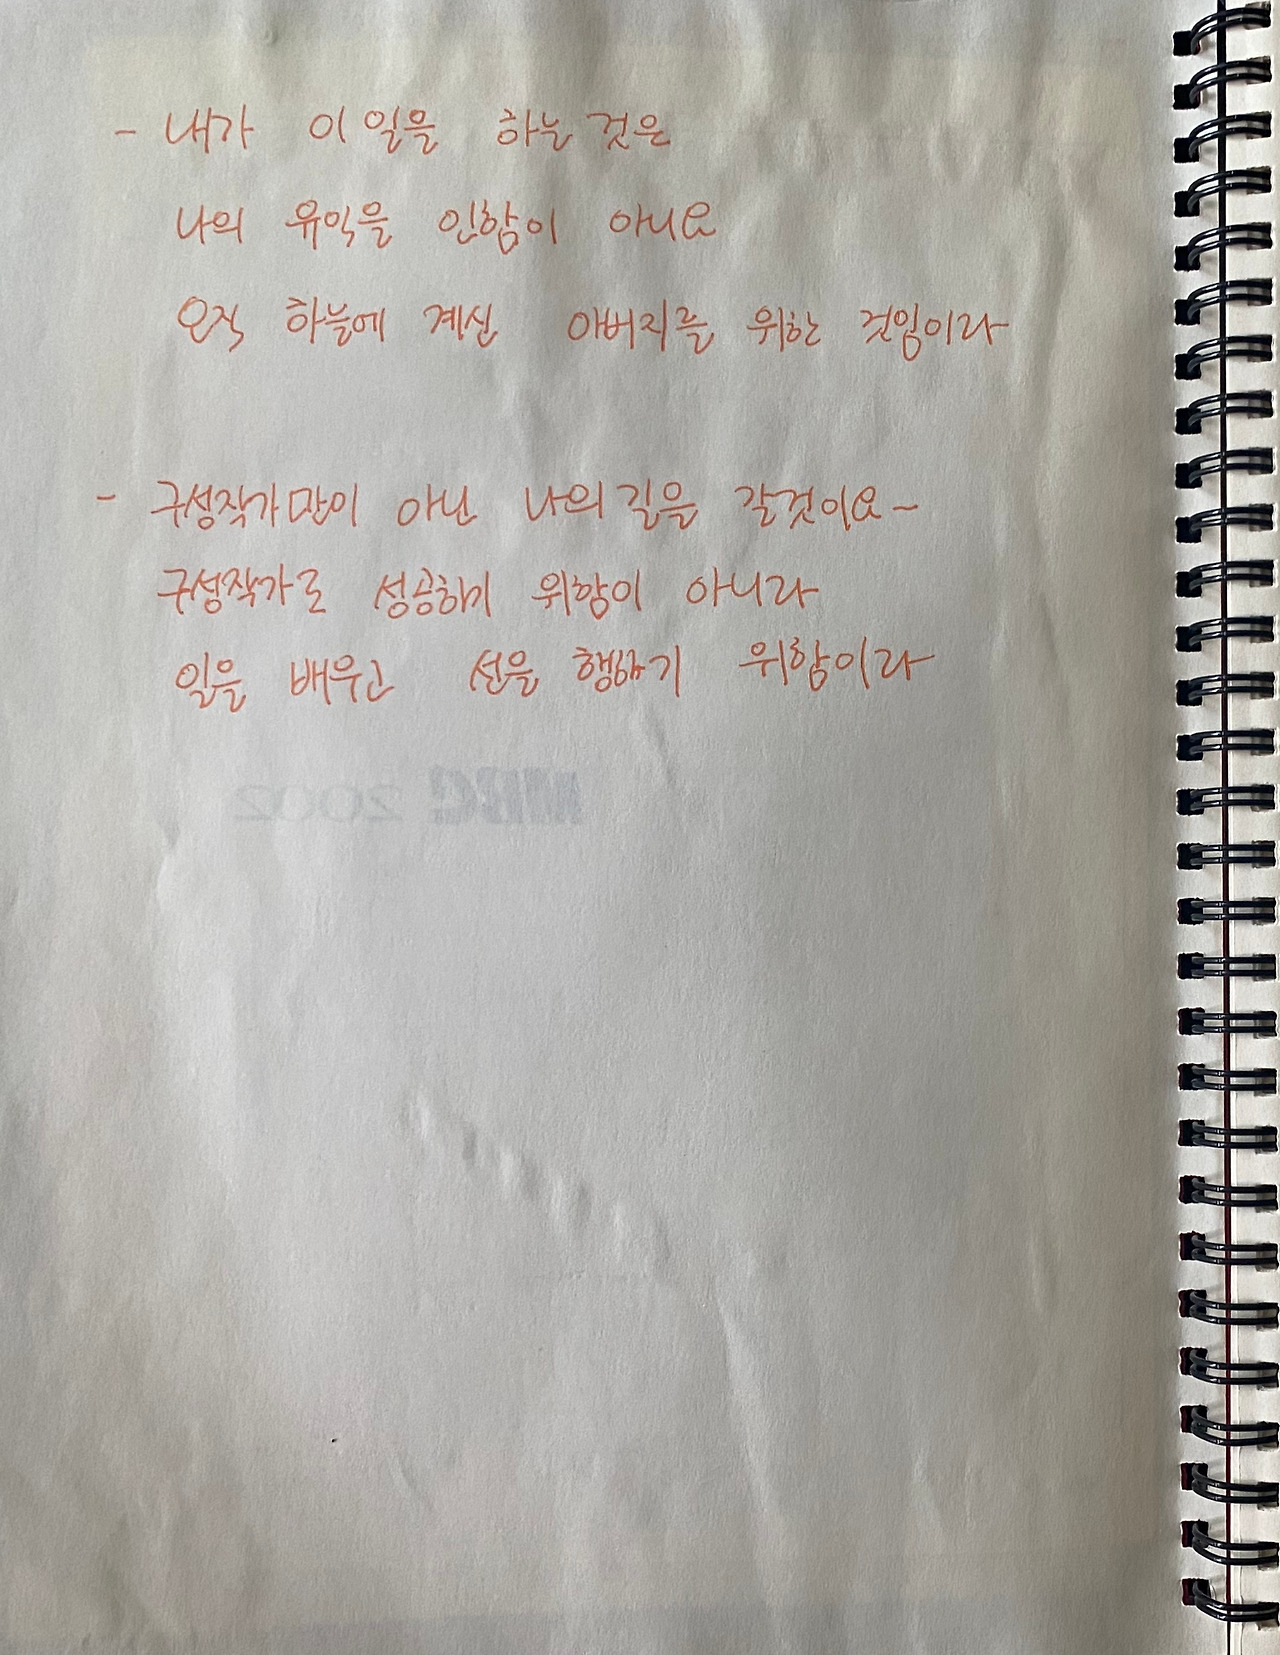 - 내가 이 일을 하는 것은
나의 유익을 인함이 아니요
오직 하늘에 계신 아버지를 위한 것임이라
- 구성작가만이 아닌 나의 길을 갈것이요~
구성작가로 성공하기 위함이 아니라
일을 배우고 선을 행하기 위함이라
MBC 2002